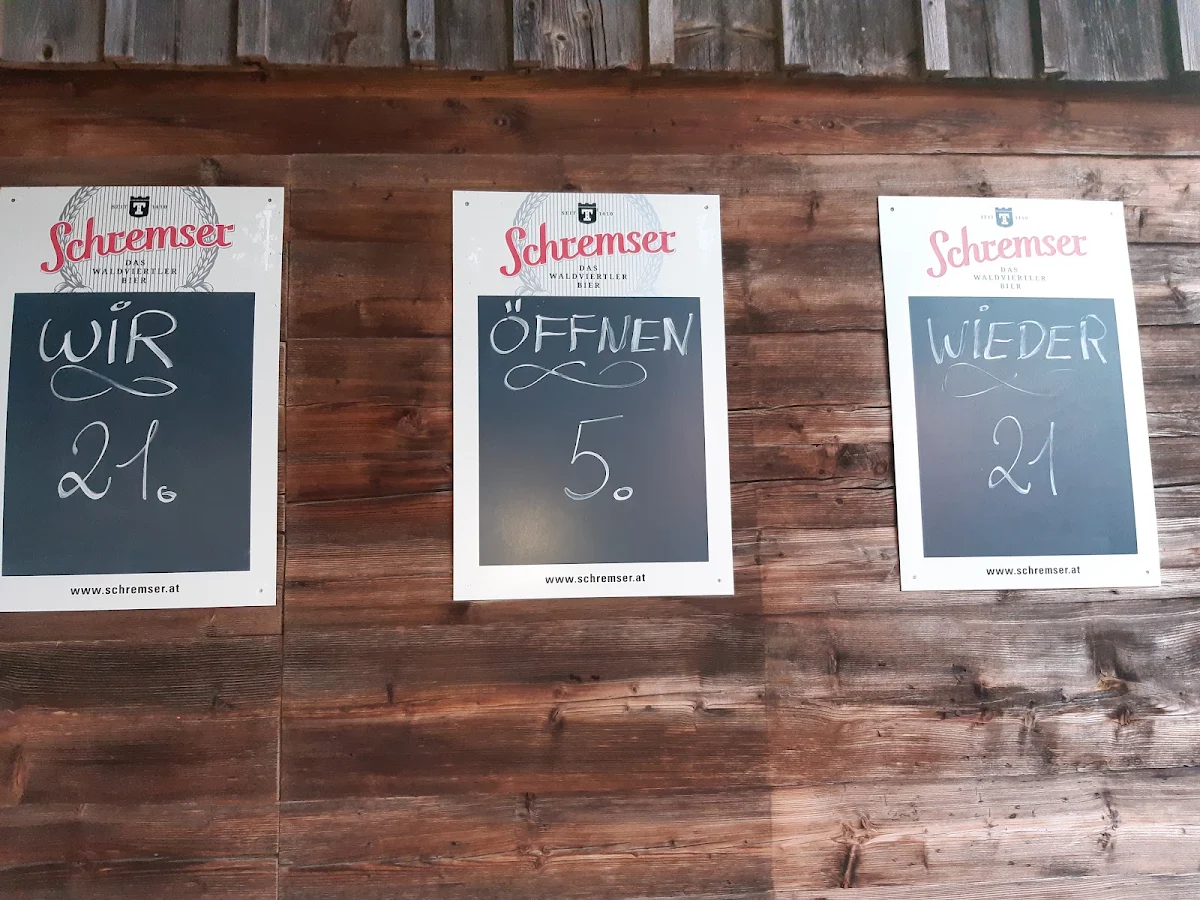 SEIT 1410
Schremser
DAS
WALDVIERTLER
BIER
WiR
21.
www.schremser.at
SEIT 1410
Schremser
DAS
WALDVIERTLER
BIER
ÖFFNEN
5.
www.schremser.at
SEIT 1410
Schremser
DAS
WALDVIERTLER
BIER
WiEDER
21
www.schremser.at